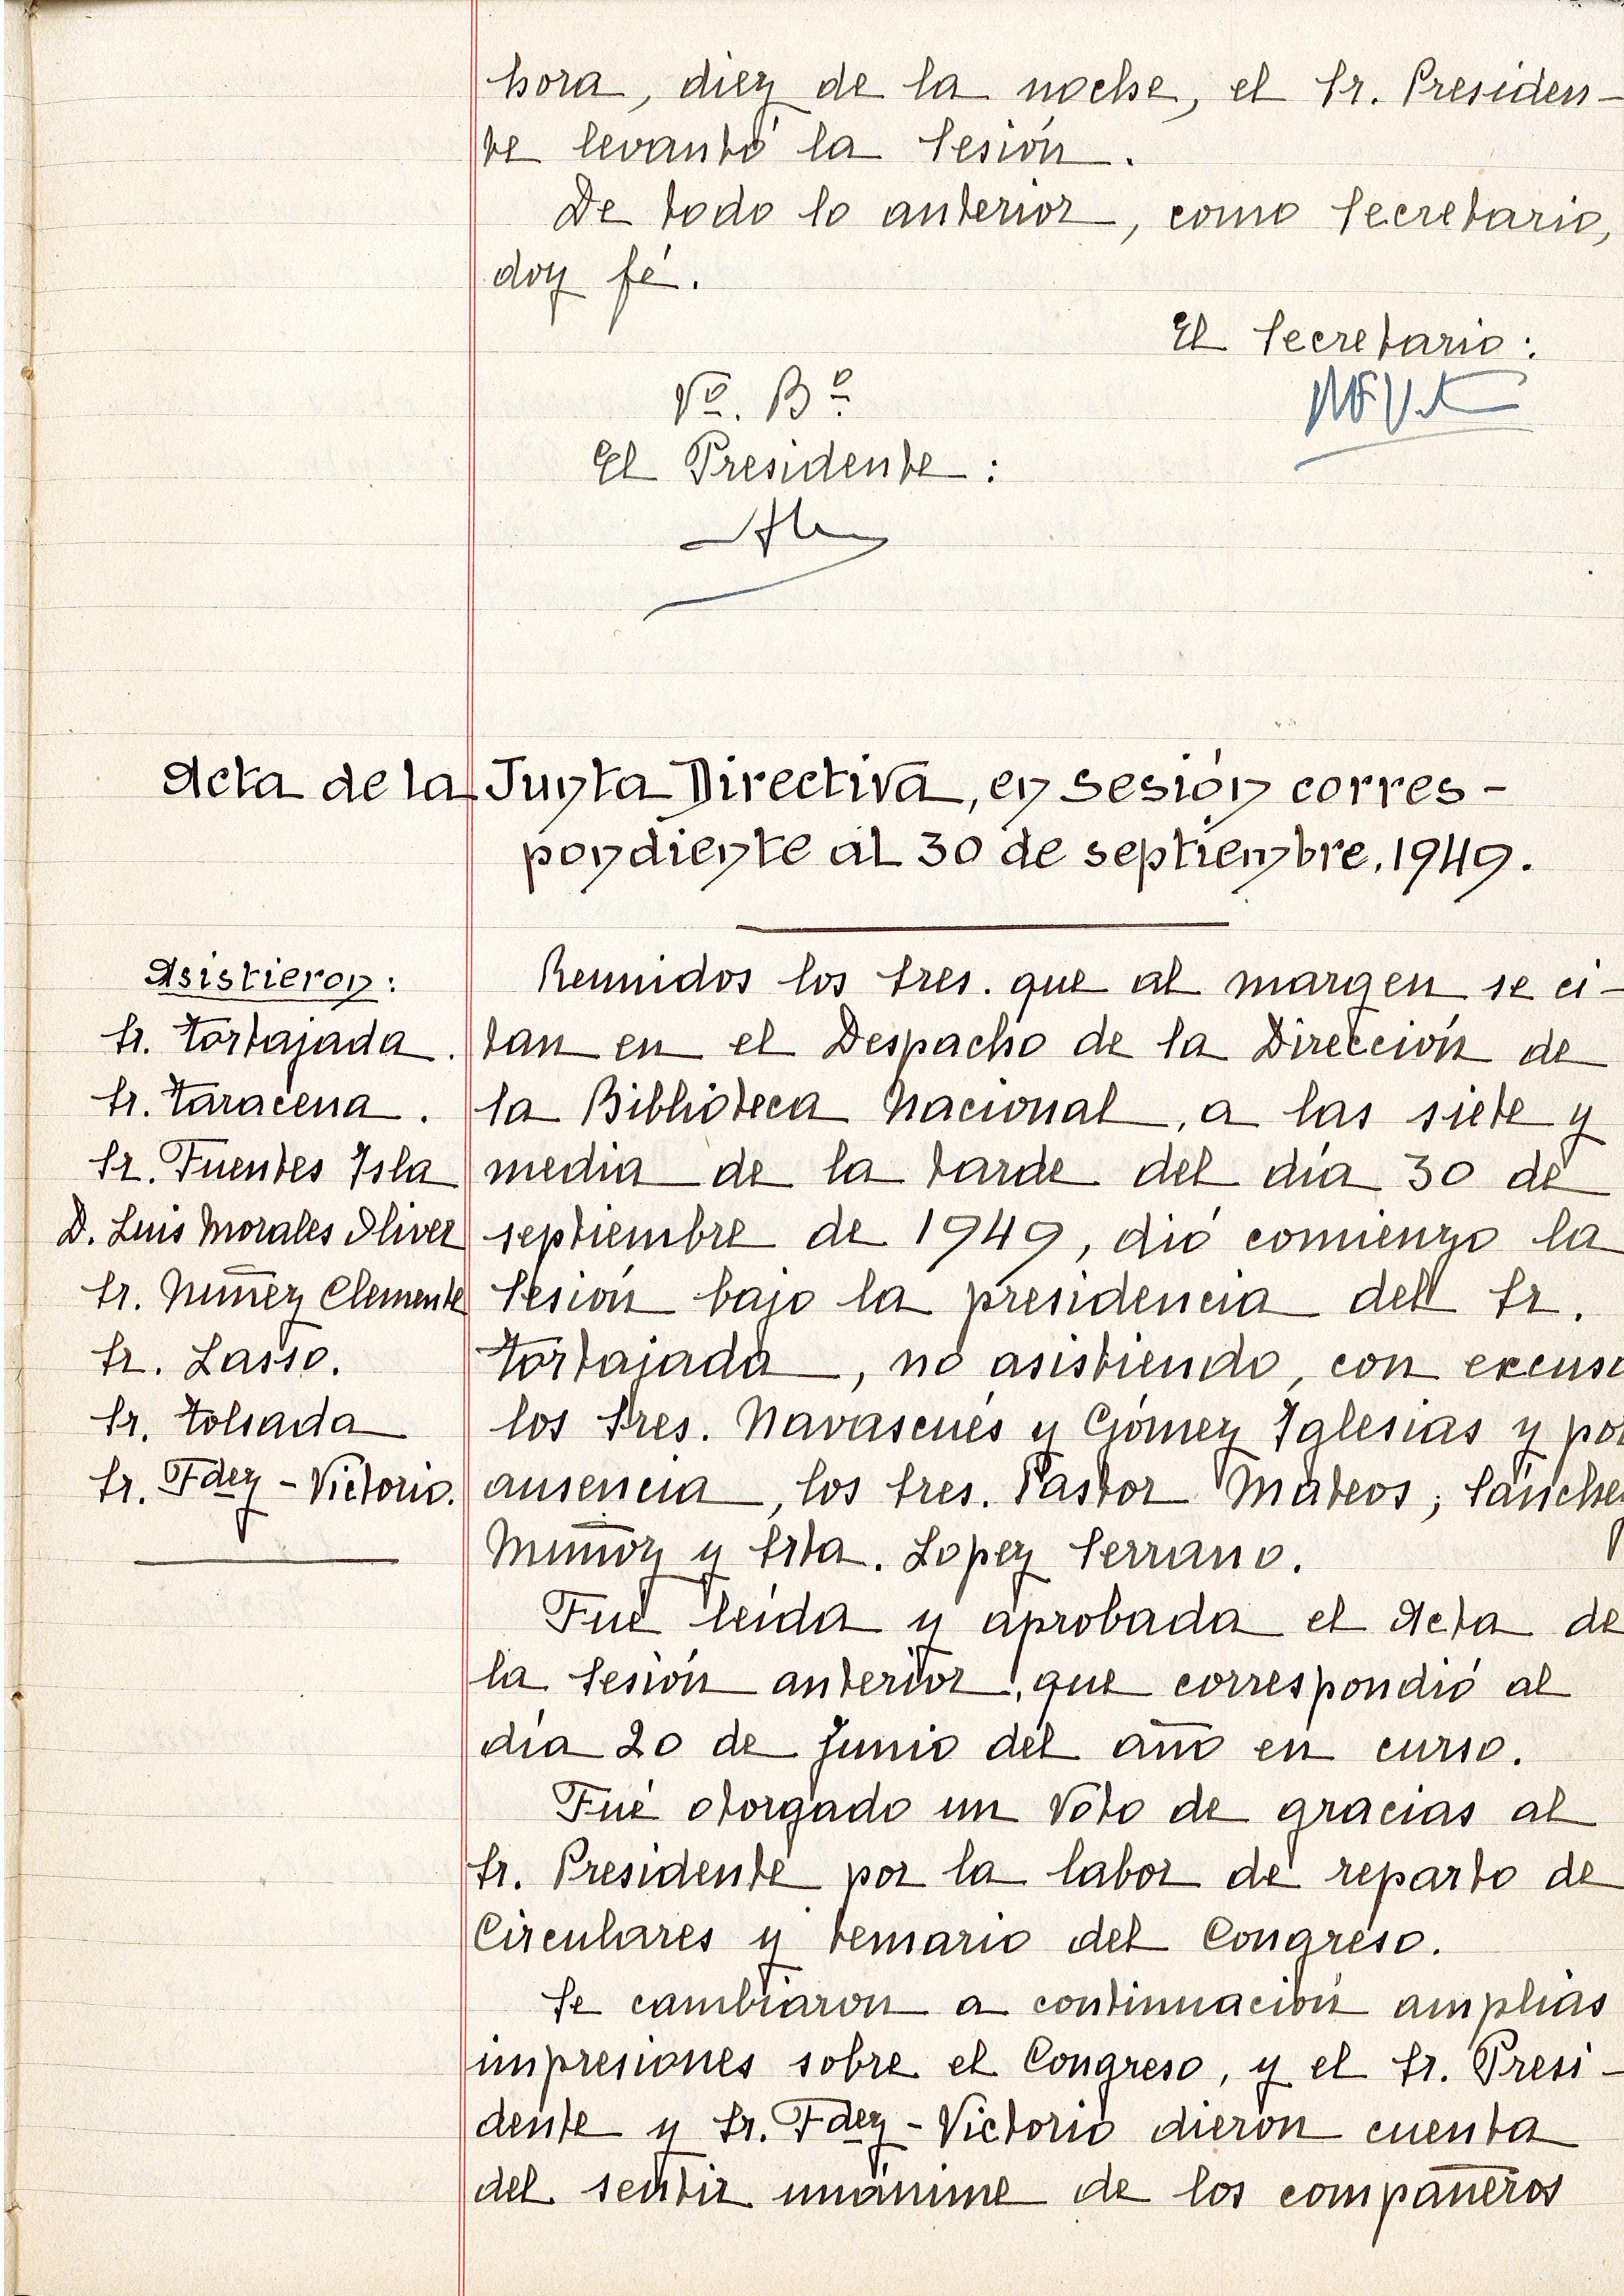 hora, diez de la noche, el Sr. Presiden-
te levantó la Sesión.
De todo lo anterior, como Secretario,
doy fé.
El Secretario:
Vº. Bº.
El Presidente:
Acta de la Junta Directiva, en sesión corres-
pondiente al 30 de septiembre, 1949.
Asistieron:
Sr. Tortajada.
Sr. Taracena.
Sr. Fuentes Isla
D. Luis Morales Oliver
Sr. Nuñez Clemente
Sr. Lasso.
Sr. Tolsada
Sr. Fdez-Victorio.
Reunidos los Sres. que al margen se ci-
tan en el Despacho de la Dirección de
la Biblioteca Nacional, a las siete y
media de la tarde del día 30 de
septiembre de 1949, dió comienzo la
Sesión bajo la presidencia del Sr.
Tortajada, no asistiendo, con excusa
los Sres. Navascués y Gómez Iglesias y por
ausencia, los Sres. Pastor Mateos; Sánchez
Muñoz y Srta. Lopez Serrano.
Fué leída y aprobada el Acta de
la Sesión anterior, que correspondió al
día 20 de Junio del año en curso.
Fué otorgado un Voto de gracias al
Sr. Presidente por la labor de reparto de
Circulares y temario del Congreso.
Se cambiaron a continuación amplias
impresiones sobre el Congreso, y el Sr. Presi-
dente y Sr. Fdez-Victorio dieron cuenta
del sentir unánime de los compañeros